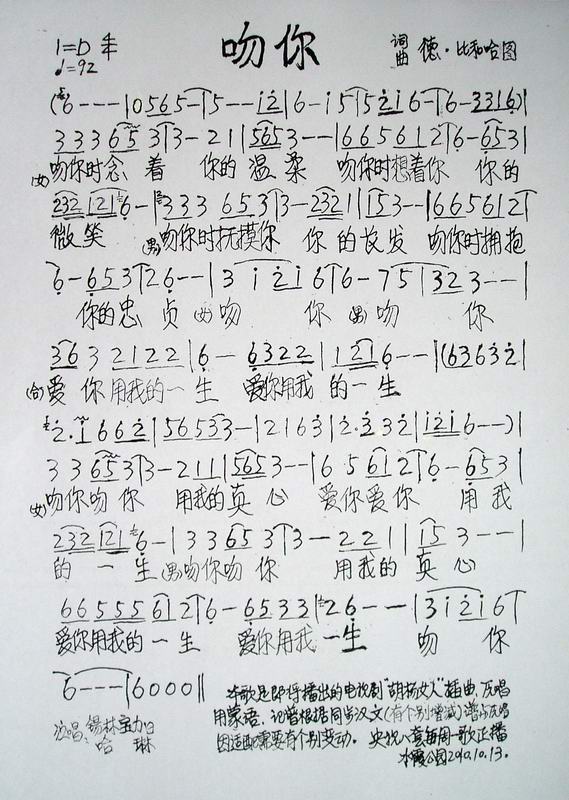 1=D 4/4
♩=92
吻你
词曲 德·比和哈图
(6---|0565-|5---i2|6-i5|52i6-|6-3316)|
333653|3-21|5653--|66561 2|6-653|
(女)吻你时念着 你的温柔 吻你时想着你 你的
232 1216-|333 653|3-2321|153--|665612|
微笑 (男)吻你时抚摸你 你的长发 吻你时拥抱
6-653|26--|3 i 2i6|6-75|323--|
你的忠贞 (女)吻 你 (男)吻 你
3632122|6-6322|1216--|(63632|
(合)爱你用我的一生 爱你用我的一生
2·1662|565 33-|2163|2·332|i2i6--)|
33653|3-211|5653--|65612|6-653|
(女)吻你吻你 用我的真心 爱你爱你 用我
232 1216-|33653|3-221|153--|
的一生 (男)吻你吻你 用我的真心
66555612|6-6533|26--|3i2i6|
爱你用我的一生 爱你用我一生 吻你
6---|6000||
本歌是即将播出的电视剧"胡杨女人"插曲,原唱
用蒙语。记谱根据同步汉文(有个别增减)谱与原唱
演唱:锡林宝力日
因适配需要有个别变动。央视八套每周一歌正播
哈琳
水霞公园2010.10.13.